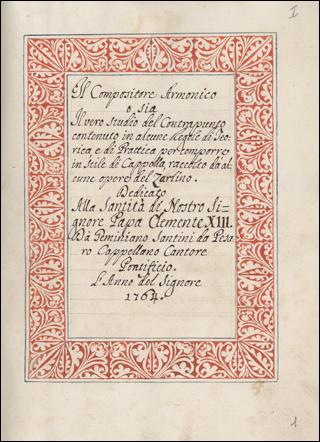 I
Il Compositore Armonico
o sia
Il vero Studio del Contrapunto
contenuto in alcune Regole di Teo-
rica e di Prattica per comporre
in Stile di Cappella, raccolto da al-
cune opere del Zarlino.
Dedicato
Alla Santità di Nostro Si=
gnore Papa Clemente XIII.
Da Geminiano Santini da Pesa-
ro Cappellano Cantore
Pontificio.
L'Anno del Signore
1764.
1